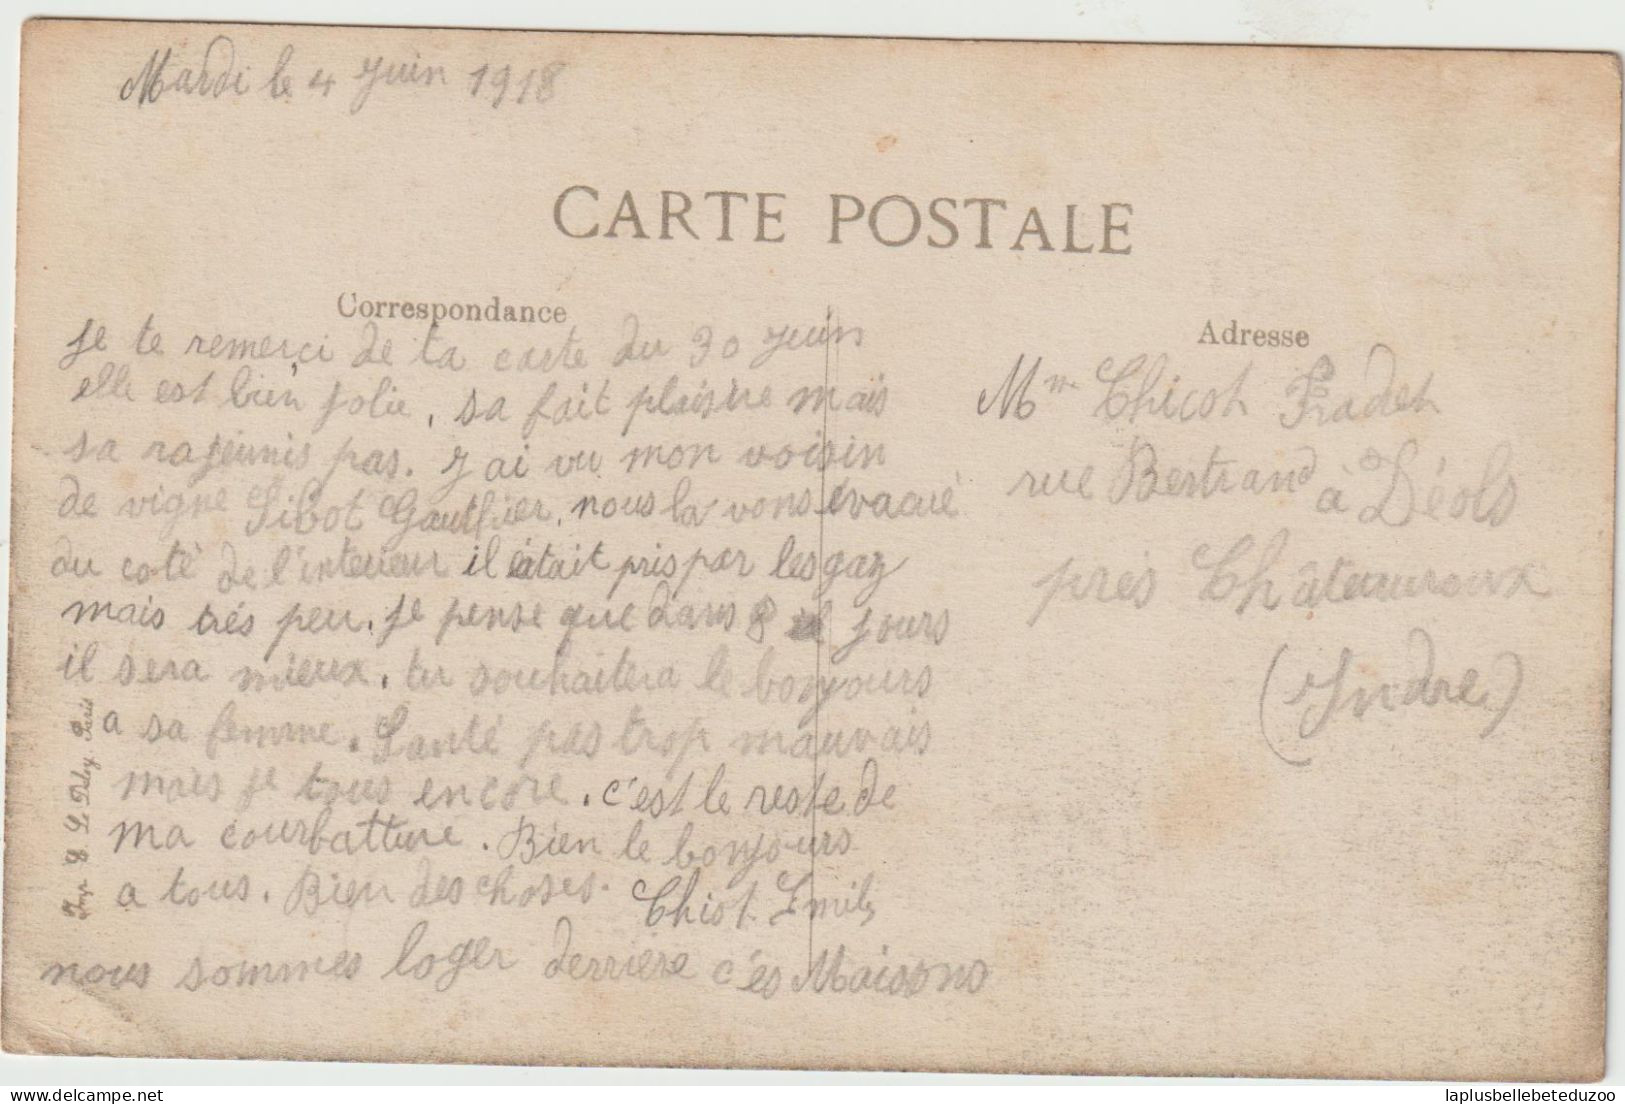 Mardi le 4 Juin 1918
CARTE POSTALE
Correspondance
Je te remerçi de ta carte du 30 Juin
elle est bien Jolie, sa fait plaisire mais
sa rajeunis pas. J'ai vu mon voisin
de vigne Sibot Gauthier, nous la vons évacué
du coté de l'interieur il était pris par les gaz
mais trés peu. Je pense que dans 8 Jours
il sera mieux. tu souhaitera le bonjours
a sa femme. Santé pas trop mauvais
mais je tous encore. c'est le reste de
ma courbatture. Bien le bonjours
a tous. Bien des choses.
Chicot Emile
nous sommes loger derriere c'es Maisons
Adresse
Mme Chicot Fradet
rue Bertrand à Déols
près Châteauroux
(Indre)
Imp. E. Le Deley, Paris
laplusbellebeteduzoo
www.delcampe.net